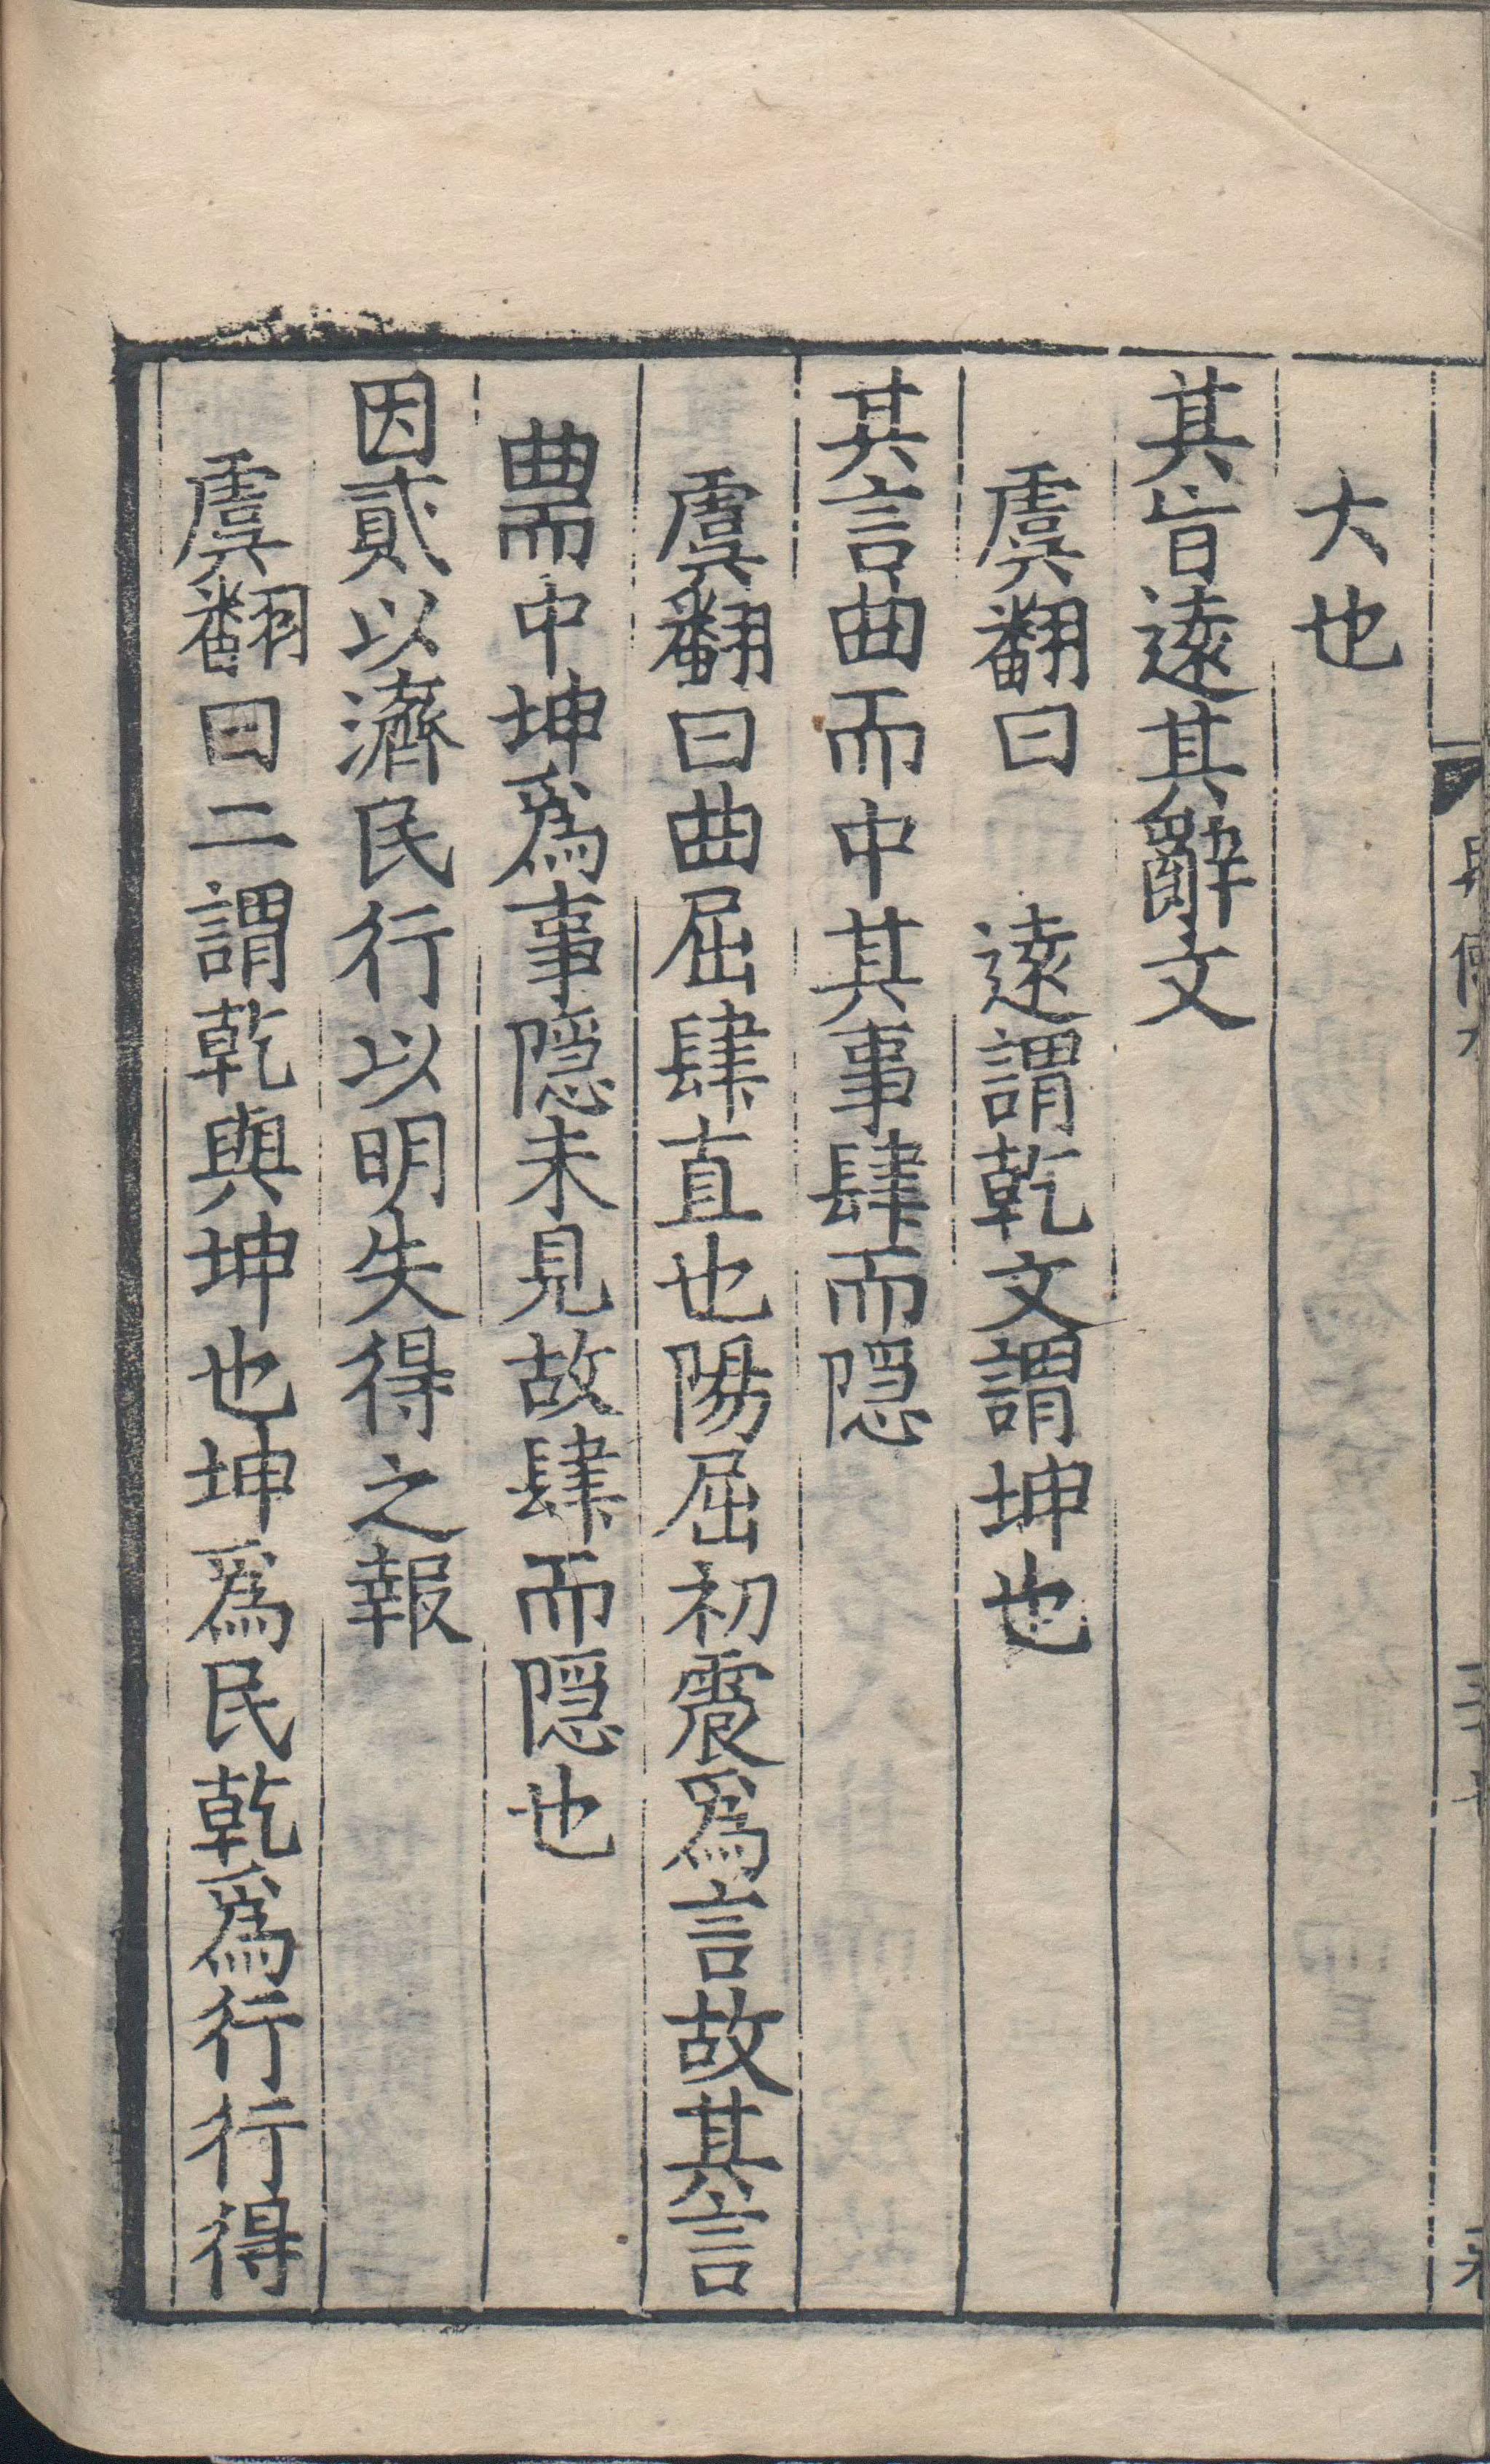 大也
其旨遠其辭文
虞翻曰　遠謂乾文謂坤也
其言曲而中其事肆而隱
虞翻曰曲屈肆直也陽屈初震爲言故其言
曲而中坤爲事隱未見故肆而隱也
因貳以濟民行以明失得之報
虞翻曰二謂乾與坤也坤爲民乾爲行行得